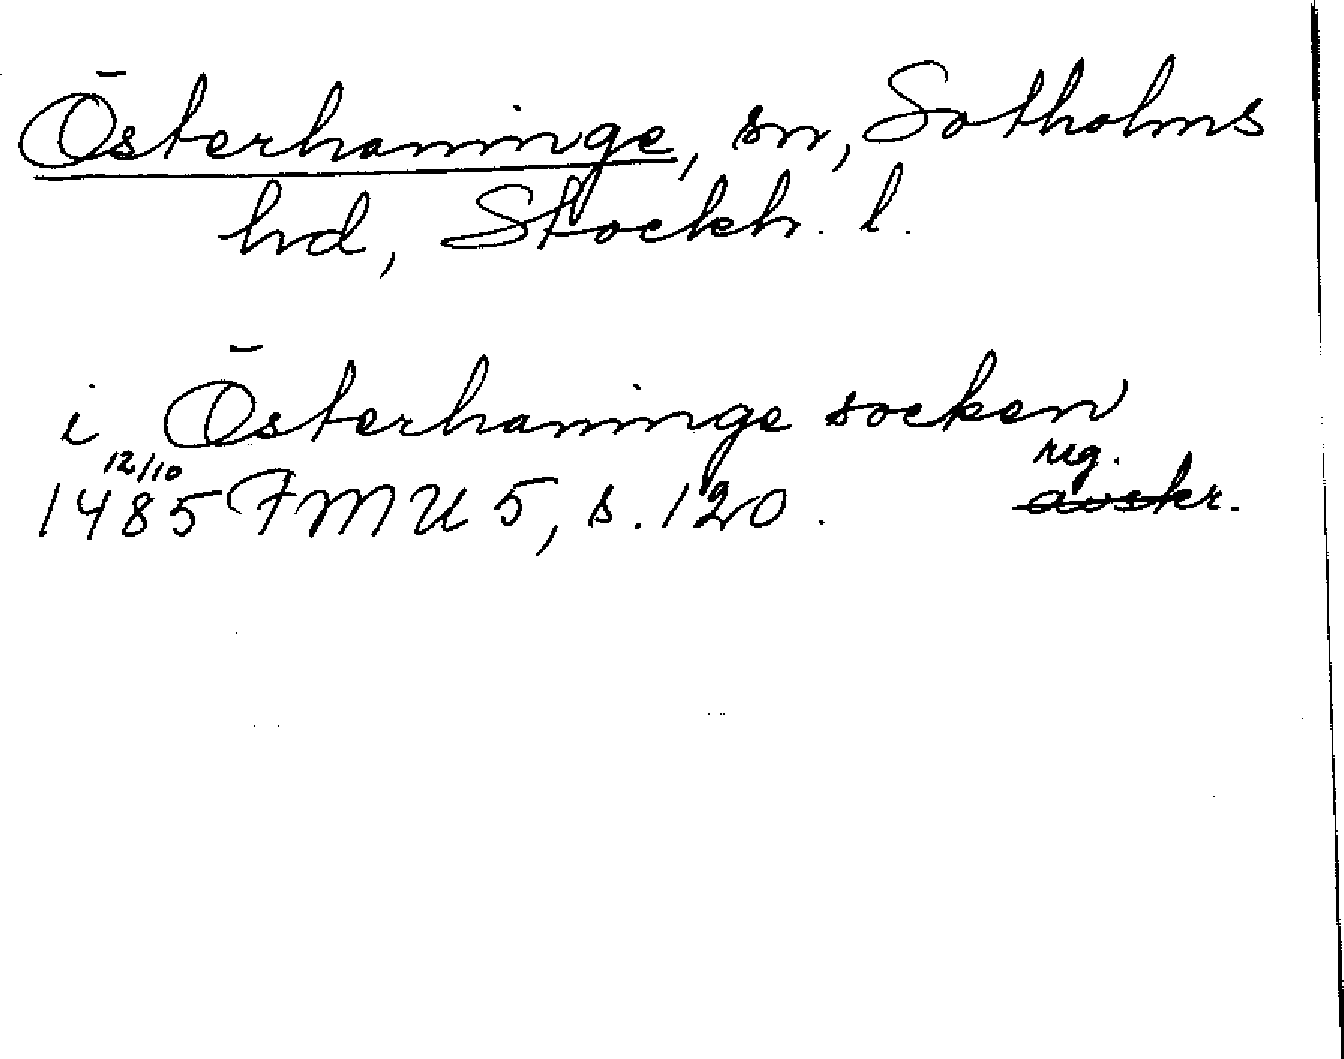 Österhaninge, sn, Sotholms
hd, Stockh. l.
i Österhaninge socken
12/10 reg.
1485 FMU 5, s. 120. avskr.